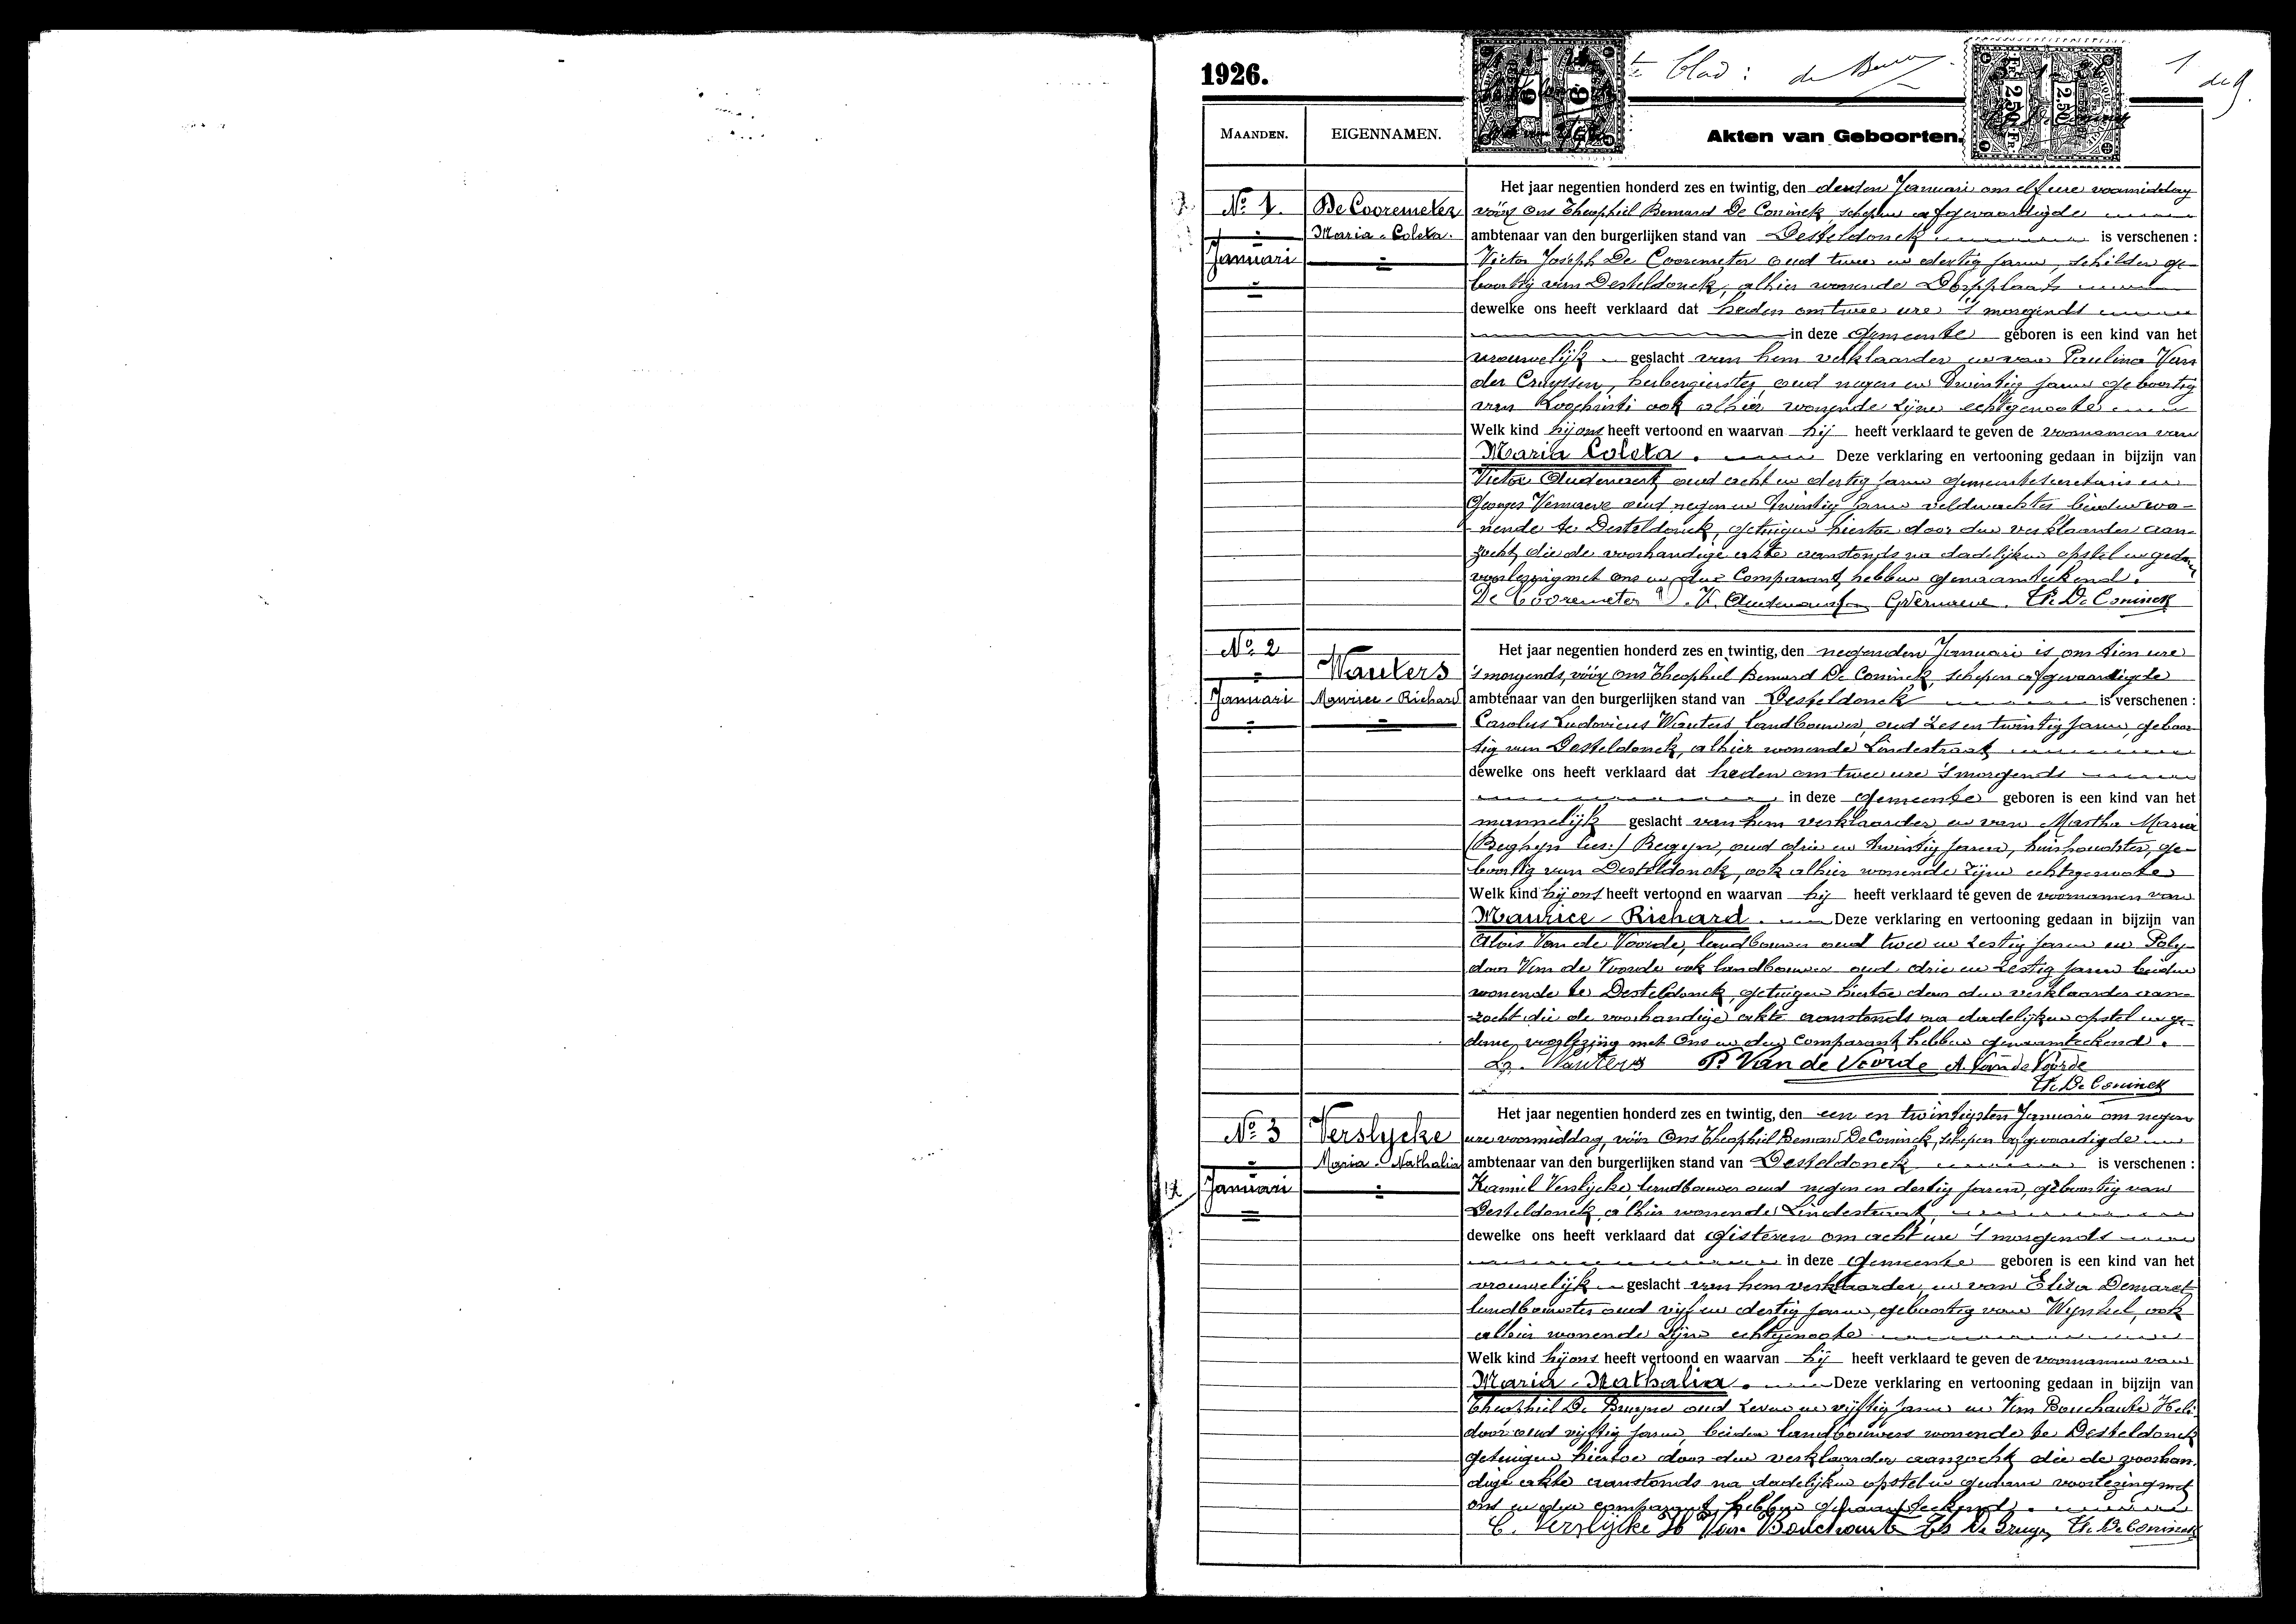 1926.
te blad:
1
MAANDEN.
EIGENNAMEN.
Akten van Geboorten.
No 1.
Januari
De Cooremeter
Maria-Coleta.
Het jaar negentien honderd zes en twintig, den derden Januari om elf ure voormiddag
vóór Ons Theophiel Bernard De Coninck, schepen afgevaardigde
ambtenaar van den burgerlijken stand van Desteldonck is verschenen :
Victor Joseph De Cooremeter oud twee en dertig jaren, schilder ge-
boortig van Desteldonck, alhier wonende Dorpplaats
dewelke ons heeft verklaard dat heden om twee ure 's morgends
in deze gemeente geboren is een kind van het
vrouwelijk geslacht van hem verklaarder en van Paulina Van
der Cruyssen, herbergierster, oud negen en twintig jaren geboortig
van Loochristi ook alhier wonende zijne echtgenoote
Welk kind hij ons heeft vertoond en waarvan hij heeft verklaard te geven de voornamen van
Maria Coleta. Deze verklaring en vertooning gedaan in bijzijn van
Victor Oudenaert, oud acht en dertig jaren gemeentesecretaris en
Georges Vernaeve oud negen en twintig jaren veldwachter beiden wo-
nende te Desteldonck, getuigen hiertoe door den verklaarder aan-
zocht, die de voorhandige akte aanstonds na dadelijken opstel en gedane
voorlezing met ons en den Comparant, hebben genaamteekend.
De Cooremeter V. V. Oudenaert GVernaeve. Th. De Coninck
No 2
Januari
Wauters
Maurice-Richard
Het jaar negentien honderd zes en twintig, den negenden Januari is om tien ure
's morgends, vóór Ons Theophiel Bernard De Coninck, schepen afgevaardigde
ambtenaar van den burgerlijken stand van Desteldonck is verschenen :
Carolus Ludovicus Wauters landbouwer, oud zes en twintig jaren, geboor-
tig van Desteldonck, alhier wonende Lindestraat
dewelke ons heeft verklaard dat heden om twee ure 's morgends
in deze gemeente geboren is een kind van het
mannelijk geslacht van hem verklaarder en van Martha Maria
(Beghyn lees:) Begyn, oud drie en twintig jaren, huishoudster, ge-
boortig van Desteldonck, ook alhier wonende zijne echtgenoote
Welk kind hij ons heeft vertoond en waarvan hij heeft verklaard te geven de voornamen van
Maurice-Richard. Deze verklaring en vertooning gedaan in bijzijn van
Alois Van de Voorde, landbouwer oud twee en zestig jaren en Poly-
door Van de Voorde ook landbouwer oud drie en zestig jaren beiden
wonende te Desteldonck, getuigen hiertoe door den verklaarder aan-
zocht die de voorhandige akte aanstonds na dadelijken opstel en ge-
dane voorlezing met Ons en den Comparant hebben genaamteekend.
Wauters P. Van de Voorde A. Van de Voorde
Th. De Coninck
No 3
Januari
Verslycke
Maria-Nathalia
Het jaar negentien honderd zes en twintig, den een en twintigsten Januari om negen
ure voormiddag, vóór Ons Theophiel Bernard De Coninck, schepen afgevaardigde
ambtenaar van den burgerlijken stand van Desteldonck is verschenen :
Kamiel Verslycke, landbouwer oud negen en dertig jaren, geboortig van
Desteldonck, alhier wonende Lindestraat,
dewelke ons heeft verklaard dat gisteren om acht ure 's morgends
in deze gemeente geboren is een kind van het
vrouwelijk geslacht van hem verklaarder, en van Elisa Demaret
landbouwster oud vijf en dertig jaren, geboortig van Wynkel, ook
alhier wonende zijne echtgenoote
Welk kind hij ons heeft vertoond en waarvan hij heeft verklaard te geven de voornamen van
Maria-Nathalia. Deze verklaring en vertooning gedaan in bijzijn van
Theophiel De Bruyne oud zeven en vijftig jaren en Van Bouchaute Heli-
door oud vijftig jaren, beiden landbouwers wonende te Desteldonck
getuigen hiertoe door den verklaarder aanzocht die de voorhan-
dige akte aanstonds na dadelijken opstel en gedane voorlezing met
ons en den comparant hebben genaamteekend.
C. Verslycke H Van Bouchaute De Bruyne Th. De Coninck